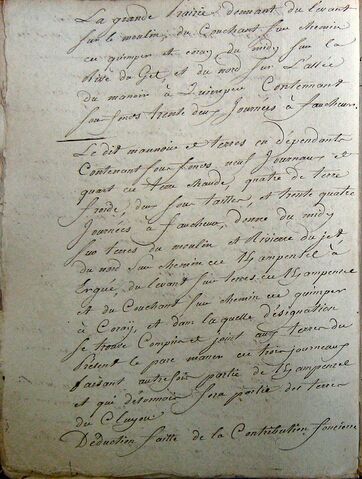 La grande Prairie donnant du levant
sur le moulin, du Couchant sur chemin
de quimper a coray du midy sur la
du Get, et du nord sur L'allée
du manoir à Contenant
sou fonds trente deux Journées à faucheur.
Le dit mannoir et terres en dépendants
Contenant sou fonds neuf Journaux et
quart de terre chaude, quatre de terre
froide, deux sou taillis, et trente quatre
Journées à faucheur, donne du midy
sur terres du moulin et Riviere du jet
du nord sur chemin de à
Ergué, du levant sur terres de
et du Couchant sur chemin de quimper
à Coray, et dans la quelle désignation
se trouve Compris et joint aux terres du
le parc de trois journeaux
faisant autrefois partie de
et qui désormais fera partie des terres
du Cluyou
Déduction faitte de la Contribution foncière